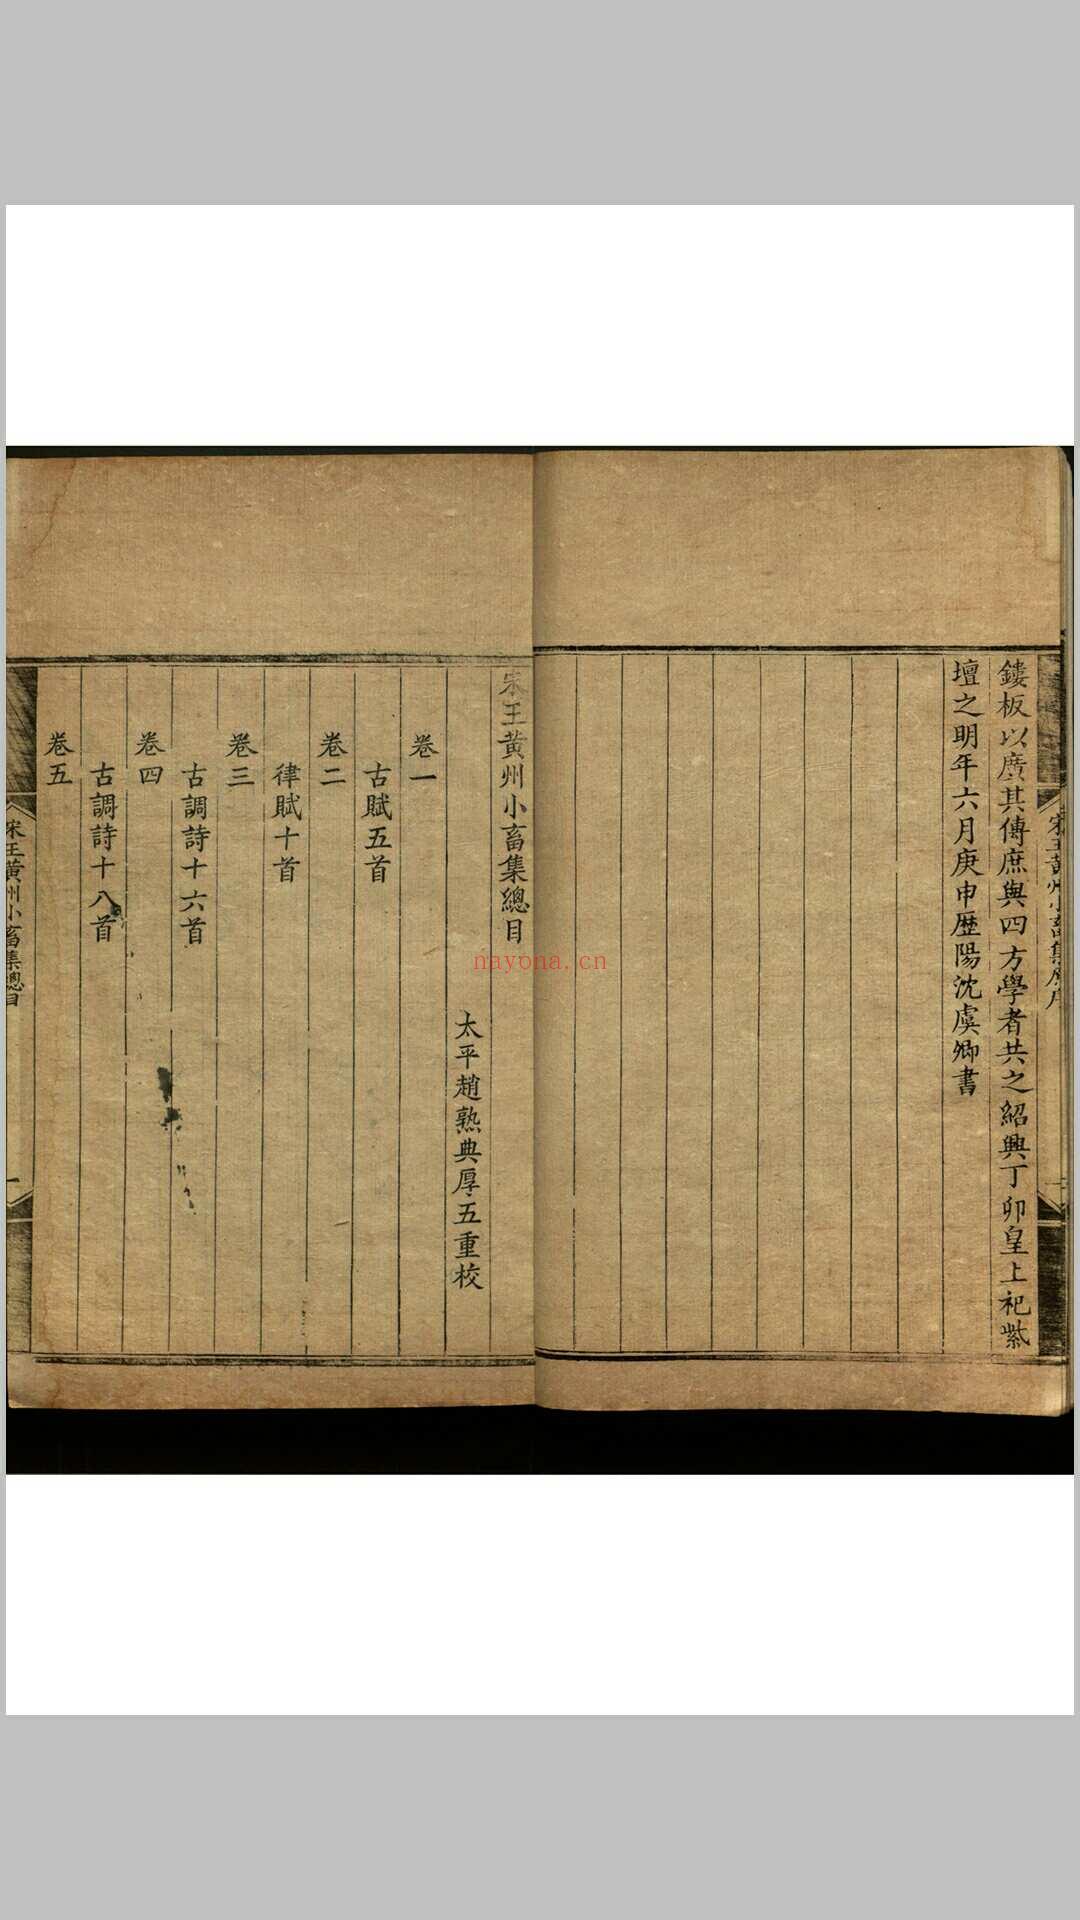 宋王黃州小畜集原序
鏤板以廣其傳庶與四方學者共之紹興丁卯皇上祀紫
壇之明年六月庚申歷陽沈虞卿書
宋王黃州小畜集總目
太平趙熟典厚五重校
卷一
古賦五首
卷二
律賦十首
卷三
古調詩十六首
卷四
古調詩十八首
卷五
宋王黃州小畜集總目
一
nayona.cn